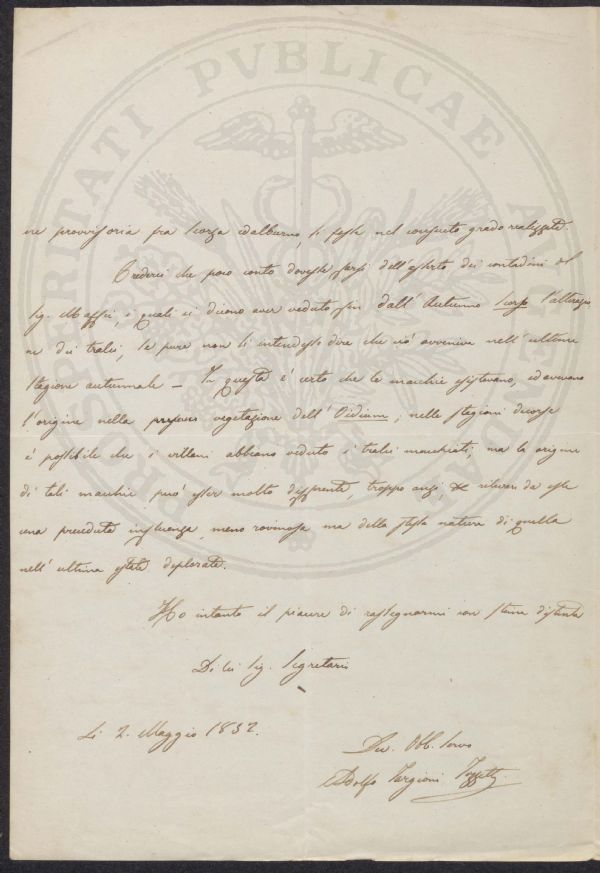 PROSPERITATI PVBLICAE AUGENDAE
ne provvisoria fra scorza ed alburno, si fosse nel consueto grado realizzata.
Crederei che poco conto dovesse farsi dell'asserto dei contadini del
Sig. Maffei, i quali ci dicono aver veduto fin dall'Autunno scorso l'alterazio
ne dei tralci, se pure non si intendesse dire che ciò avveniva nell'ultima
stagione autunnale — In questa è certo che le macchie esistevano, ed avevano
l'origine nella vegetazione dell'Oidium; nelle stagioni decorse
è possibile che i villani abbiano veduto i tralci macchiati, ma la origine
di tali macchie può esser molto differente, troppo anzi, da esse
una preceduta influenza, meno rovinosa ma della stessa natura di quella
nell'ultima estate deplorata.
Ho intanto il piacere di rassegnarmi con stima distinta
Di lei Sig. Segretario
Li 2. Maggio 1852.
Dev. Obb. Servo
Adolfo Targioni Tozzetti